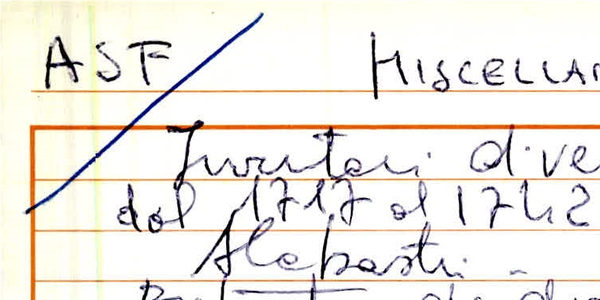 ASF MISCELLAN
Inventari dive
dal 1717 al 1742
Alabastri